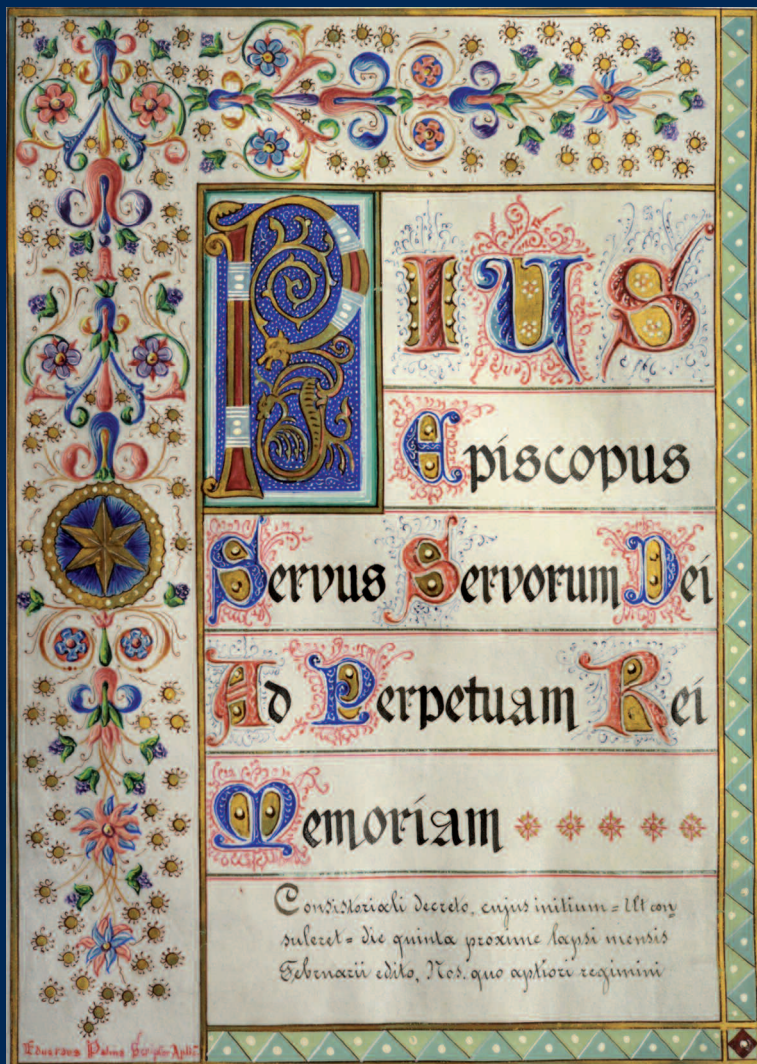 PIUS
Episcopus
Servus Servorum Dei
Ad Perpetuam Rei
Memoriam
Consistoriali decreto, cujus initium = Ut con
suleret = die quinta proxime lapsi mensis
Februarii edito, Nos, quo aptiori regimini
Scriptor